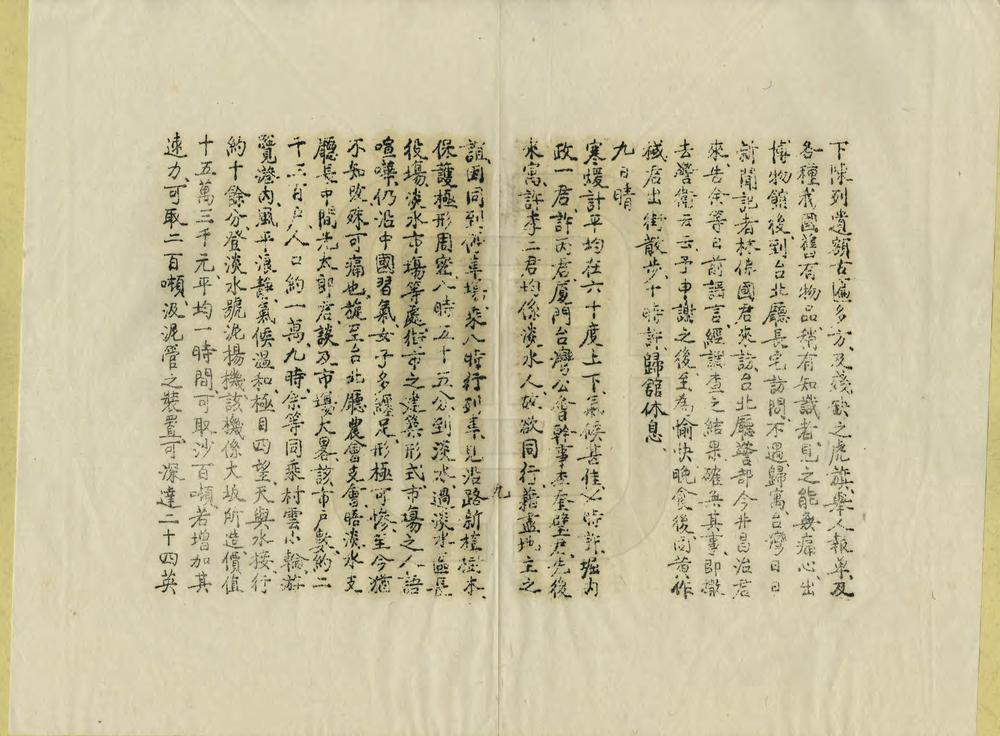 下陳列遺額古匾多方、及殘缺之虎旗舉人報單及
各種我國舊有物品稍有知識者見之能無痛心出
博物館後到台北廳長宅訪問不遇歸寓台灣日日
新聞記者林佛國君來訪台北廳警部今井昌治君
來告余等日前謡言經調查之結果確無其事即撤
去警衛云云予申謝之後至為愉快晚食後同者作
械君出街散步十時許歸舘休息、
九日晴
寒煖計平均在六十度上下、氣候甚佳、七時許堀內
政一君、許丙君厦門台灣公會幹事李奎璧君、先後
來寓、許李二君均係淡水人故欲同行藉盡地主之
九
誼、囬同到停車場乘八時行列車、見沿路新植樹木、
保護極形周密、八時五十五分到淡水、過淡水區長
役場淡水市場等處街市之建築形式市場之人語
喧嘩、仍沿中國習氣女子多纏足、形極可慘至今猶
不知改殊可痛也、旋至台北廳農會支會晤淡水支
廳長中間光太郎君、談及市場大畧該市戶數約二
千三百戶人口約一萬九時余等同乘村雲小輪游
覽港內、風平浪靜氣候温和極目四望、天與水接、行
約十餘分、登淡水號泥揚機該機係大坂所造、價值
十五萬三千元、平均一時間可取沙百噸、若增加其
速力、可取二百噸、汲泥管之裝置、可深達二十四英